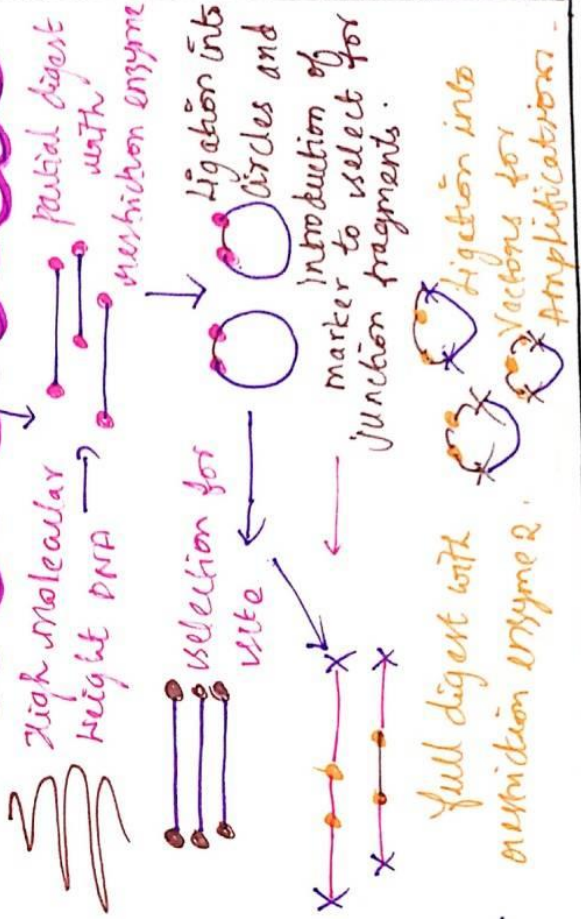 High molecular
weight DNA
partial digest
with
restriction enzyme
selection for
site
Ligation into
circles and
Introduction of
marker to select for
junction fragments.
full digest with
restriction enzyme 2.
Ligation into
Vactors for
Amplification.